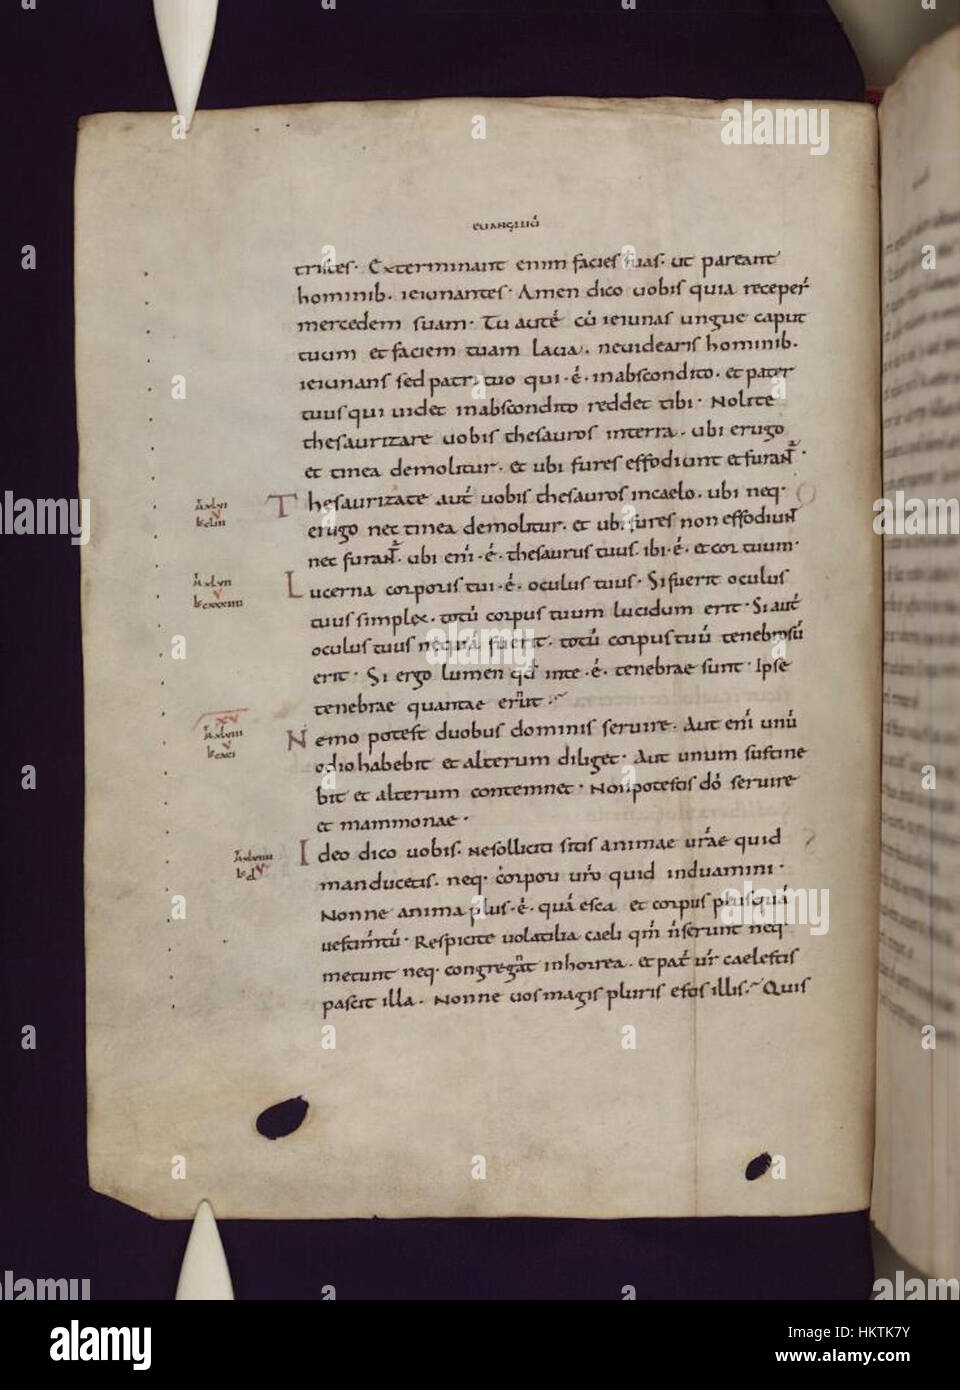 EUANGELIU̅
tristes· Exterminant enim facies suas· ut pareant
hominib· ieiunantes· Amen dico uobis quia receper̅
mercedem suam· Tu aute̅ cu̅ ieiunas ungue caput
tuum et faciem tuam laua· neuidearis hominib·
ieiunans sed patri tuo qui ·e̅· inabscondito· et pater
tuus qui uidet inabscondito reddet tibi· Nolite
thesaurizare uobis thesauros interra· ubi erugo
et tinea demolitur· et ubi fures effodiunt et furant̅·
Thesaurizate aut̅ uobis thesauros incaelo· ubi neq·
erugo nec tinea demolitur· et ubi fures non effodiunt
nec furant̅· ubi eni̅ ·e̅· thesaurus tuus· ibi ·e̅· et cor tuum·
Lucerna corporis tui ·e̅· oculus tuus· Si fuerit oculus
tuus simplex· totu̅ corpus tuum lucidum erit· Si aut̅
oculus tuus nequa̅ fuerit· totu̅ corpus tuu̅ tenebrosu̅
erit· Si ergo lumen qd̅ inte ·e̅· tenebrae sunt· Ipse
tenebrae quantae er̅ut·
Nemo potest duobus dominis seruire· Aut eni̅ unu̅
odio habebit et alterum diliget· Aut unum sustine
bit et alterum contemnet· Non potestis do̅ seruire
et mammonae·
Ideo dico uobis· ne solliciti sitis animae ur̅ae quid
manducetis· neq· corpori ur̅o quid induamini·
Nonne anima plus ·e̅· qua̅ esca et corpus plus qua̅
uestim̅tu̅· Respicite uolatilia caeli qm̅ n̅ serunt neq·
metunt neq· congrega̅t inhorrea· et pat̅ ur̅ caelestis
pascit illa· Nonne uos magis pluris estis illis· Quis
alamy
HKTK7Y
www.alamy.com